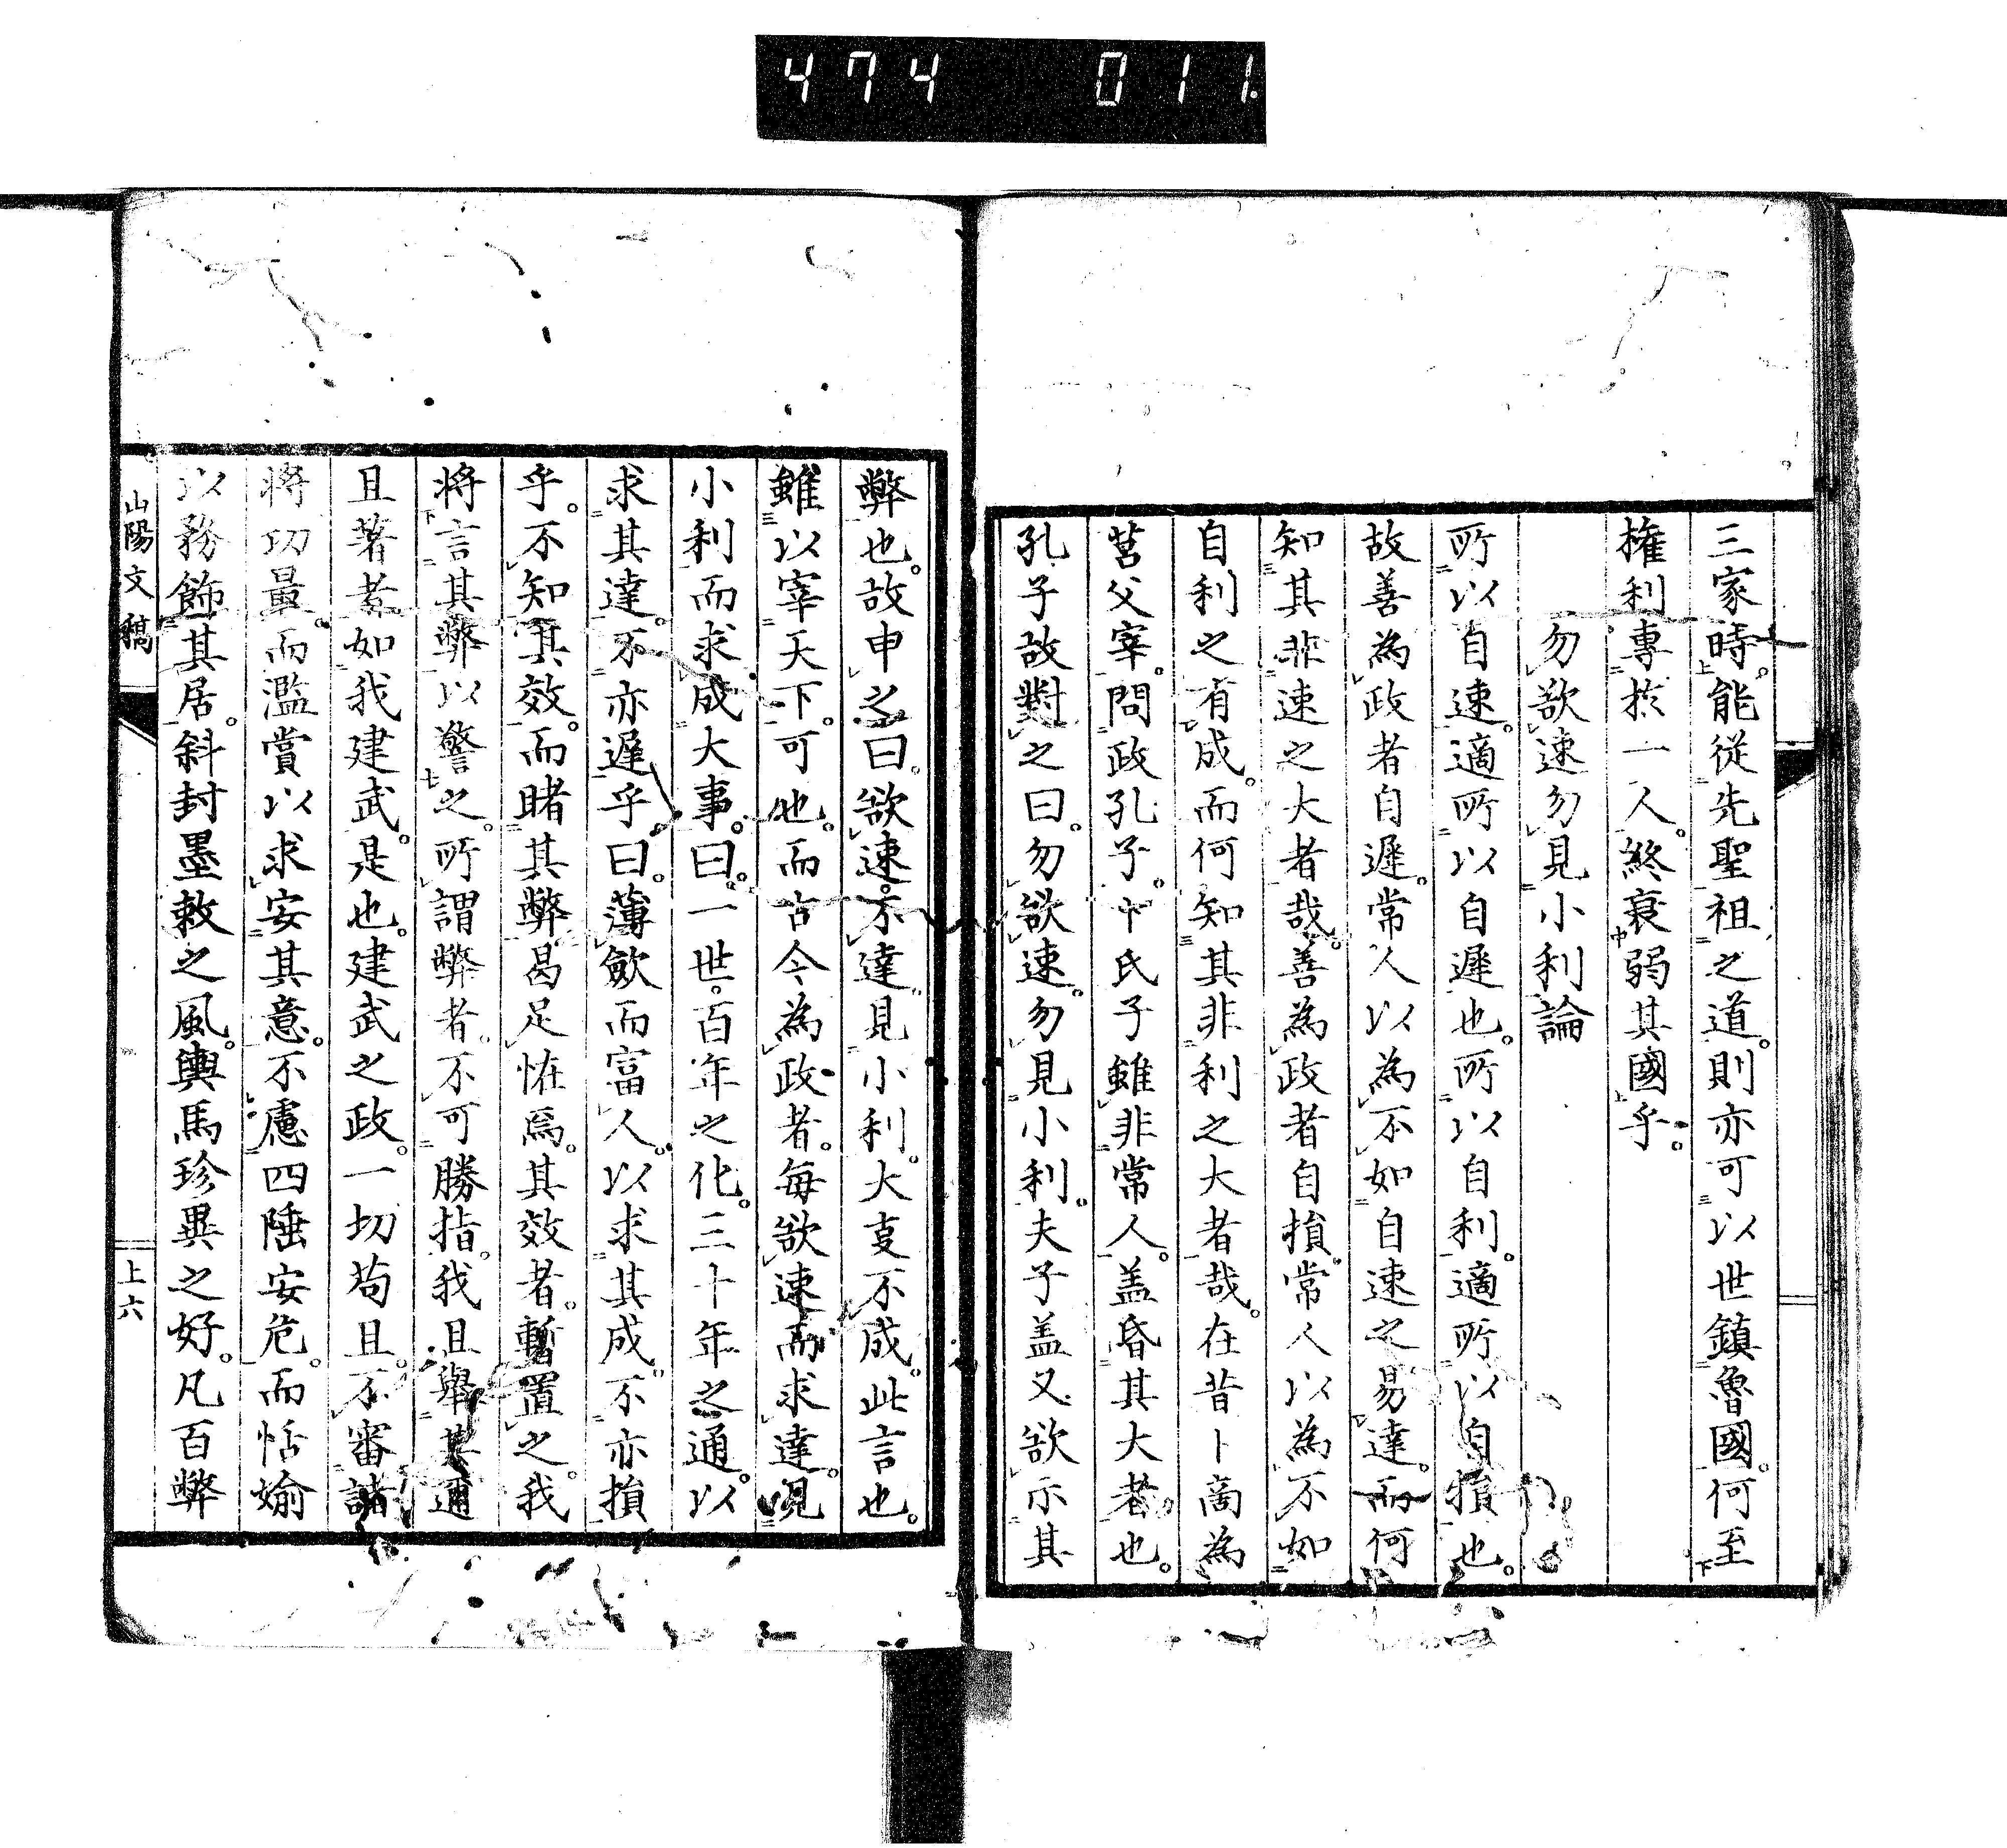 474 011
三家時。能從先聖祖之道。則亦可以世鎮魯國。何至
權利專於一人。終衰弱其國乎。
勿欲速勿見小利論
所以自速。適所以自遲也。所以自利。適所以自損也。
故善為政者自遲。常人以為不如自速之易達。而何
知其非速之大者哉。善為政者自損。常人以為不如
自利之有成。而何知其非利之大者哉。在昔卜商為
莒父宰。問政孔子。卜氏子雖非常人。盖昏其大者也。
孔子故對之曰。勿欲速。勿見小利。夫子盖又欲示其
弊也。故申之曰。欲速。不達。見小利。大㕝不成。此言也。
雖以宰天下。可也。而古今為政者。每欲速而求達。見
小利而求成大事。曰。一世。百年之化。三十年之通。以
求其達。不亦遲乎。曰。薄斂而富人。以求其成。不亦損
乎。不知其效。而睹其弊曷足恠焉。其效者。暫置之。我
將言其弊以警之。所謂弊者。不可勝指。我且舉其邇
且著者如我建武。是也。建武之政。一切苟且。不審諸
將功量。而濫賞以求安其意。不慮四陲安危。而恬婾
以務飾其居。斜封墨敕之風。輿馬珍異之好。凡百弊
山陽文稿
上六